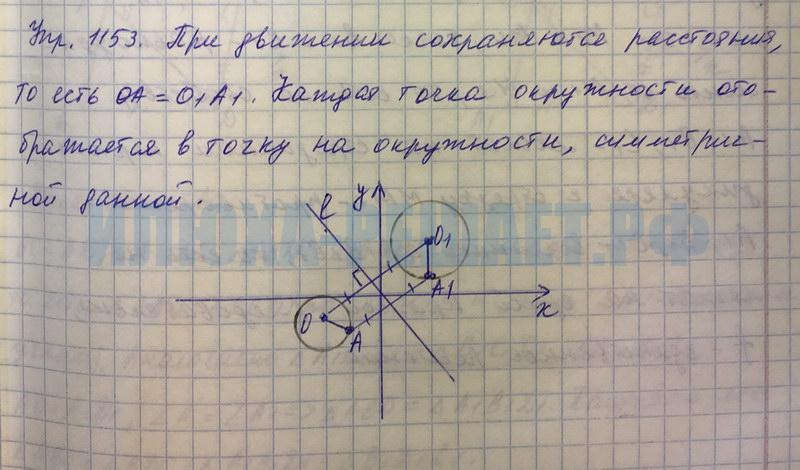 Упр. 1153. При движении сохраняются расстояния,
то есть OA = O1A1. Каждая точка окружности ото-
бражается в точку на окружности, симметрич-
ной данной.
ИЛЮХА-РЕШАЕТ.РФ
y
l
O1
A1
x
O
A